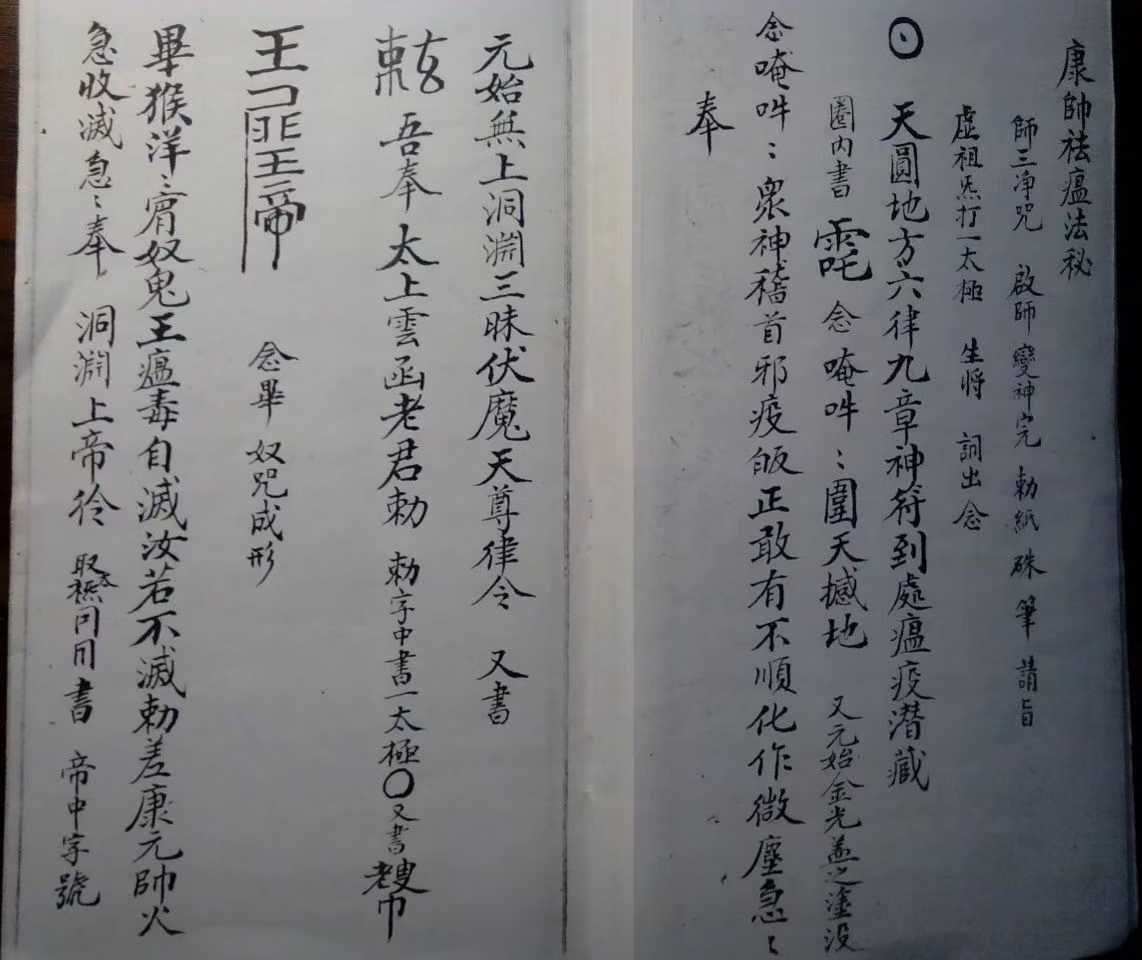 康帥祛瘟法秘
師三净咒 啟師變神完 勅紙硃筆請旨
虛祖炁打一太極 生將 詞出念
天圓地方六律九章神符到處瘟疫潛藏
圈内書 念唵吽〻圍天撼地 又元始金光盖之塗没
念唵吽〻衆神稽首邪疫皈正敢有不順化作微塵急〻
奉
元始無上洞淵三昧伏魔天尊律令 又書
勅 吾奉太上雲函老君勅 勅字中書一太極〇又書
王 帝 念畢奴咒成形
畢猴洋〻 奴鬼王瘟毒自滅汝若不滅勅差康元帥火
急收滅急〻奉 洞淵上帝 同用書 帝中字號